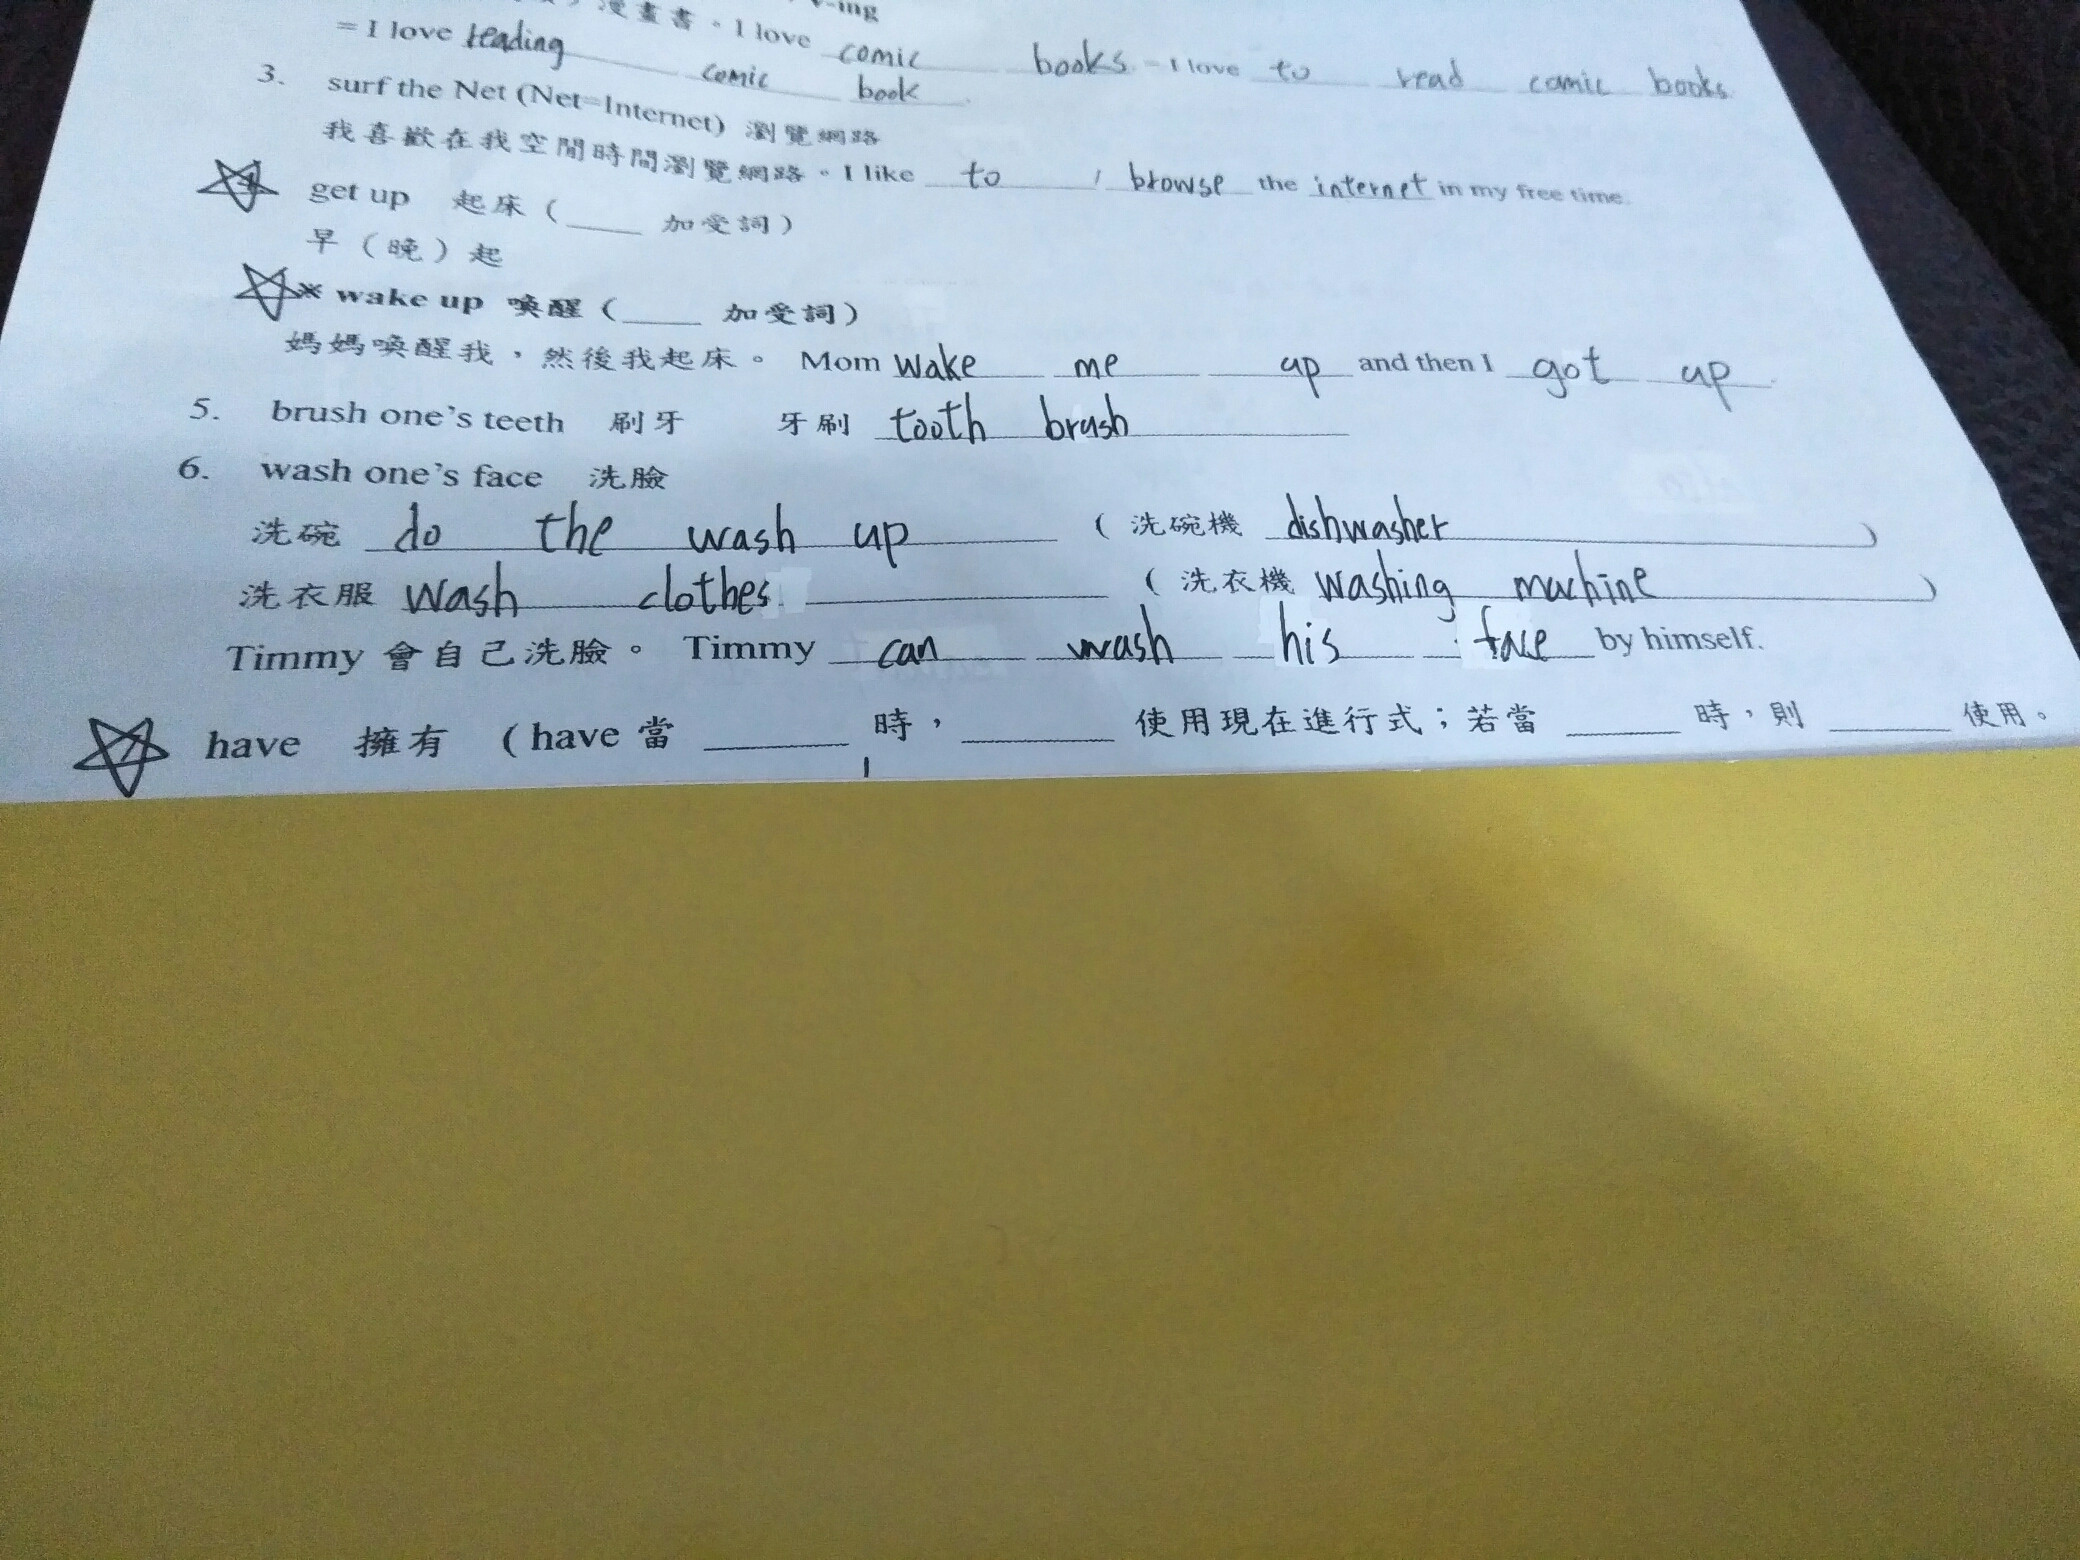 漫畫書。I love comic books = I love to read comic books
= I love reading comic book.
3. surf the Net (Net=Internet) 瀏覽網路
我喜歡在我空閒時間瀏覽網路。I like to browse the internet in my free time.
get up 起床(____ 加受詞)
早(晚)起
※ wake up 喚醒(____ 加受詞)
媽媽喚醒我,然後我起床。 Mom wake me up and then I got up.
5. brush one's teeth 刷牙 牙刷 tooth brush
6. wash one's face 洗臉
洗碗 do the wash up (洗碗機 dishwasher)
洗衣服 wash clothes (洗衣機 washing machine)
Timmy 會自己洗臉。 Timmy can wash his face by himself.
have 擁有 (have 當 ______ 時,______ 使用現在進行式;若當 ______ 時,則 ______ 使用。